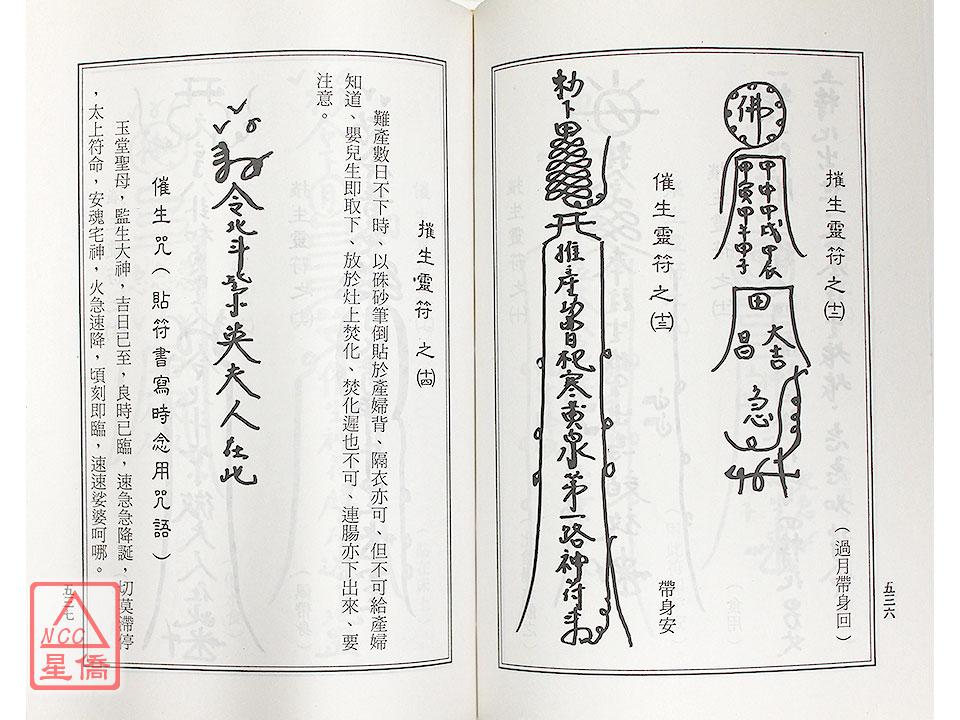 五三六
摧生靈符之(十二)
佛
甲申甲戌甲辰
甲寅甲午甲子
田
大吉
昌
急
(過月帶身回)
催生靈符之(十三)
勅下
推產
寒
泉第一路神符
帶身安
摧生靈符之(十四)
難產數日不下時、以硃砂筆倒貼於產婦背、隔衣亦可、但不可給產婦
知道、嬰兒生即取下、放於灶上焚化、焚化遲也不可、連腸亦下出來、要
注意。
令北斗紫英夫人在此
催生咒(貼符書寫時念用咒語)
玉堂聖母,監生大神,吉日已至,良時已臨,速急急降誕,切莫滯停
,太上符命,安魂宅神,火急速降,頃刻即臨,速速娑婆呵哪。
五三七
NCC
星僑